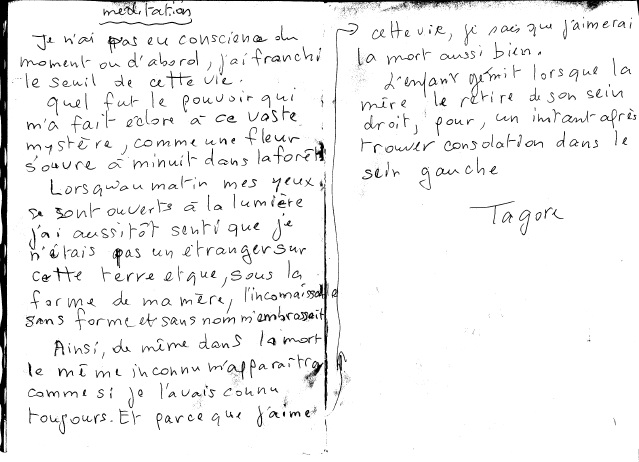 méditation
Je n'ai pas eu conscience du
moment où d'abord, j'ai franchi
le seuil de cette vie.
Quel fut le pouvoir qui
m'a fait éclore à ce vaste
mystère, comme une fleur
s'ouvre à minuit dans la forêt
Lorsqu'au matin mes yeux
se sont ouverts à la lumière
j'ai aussitôt senti que je
n'étais pas un étranger sur
cette terre et que, sous la
forme de ma mère, l'inconnaissable
sans forme et sans nom m'embrassait
Ainsi, de même dans la mort
le même inconnu m'apparaîtra
comme si je l'avais connu
toujours. Et parce que j'aime
→ cette vie, je sais que j'aimerai
la mort aussi bien.
L'enfant gémit lorsque la
mère le retire de son sein
droit, pour, un instant après
trouver consolation dans le
sein gauche
Tagore